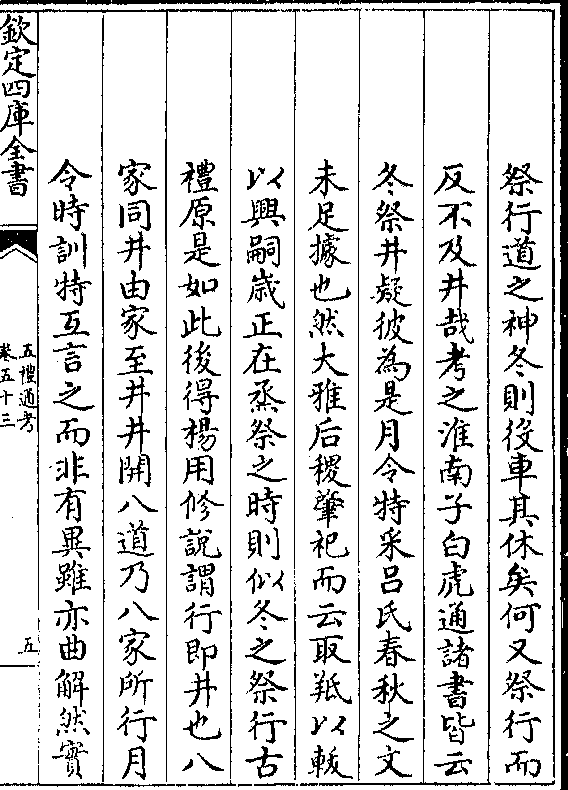 祭行道之神冬則役車其休矣何又祭行而
反不及井哉考之淮南子白虎通諸書皆云
冬祭井疑彼為是月令特采吕氏春秋之文
未足據也然大雅后稷肇祀而云取羝以軷
以興嗣歳正在烝祭之時則似冬之祭行古
禮原是如此後得楊用修說謂行即井也八
家同井由家至井井開八道乃八家所行月
令時訓特互言之而非有異雖亦曲解然實
欽定四庫全書
五禮通考
卷五十三
五